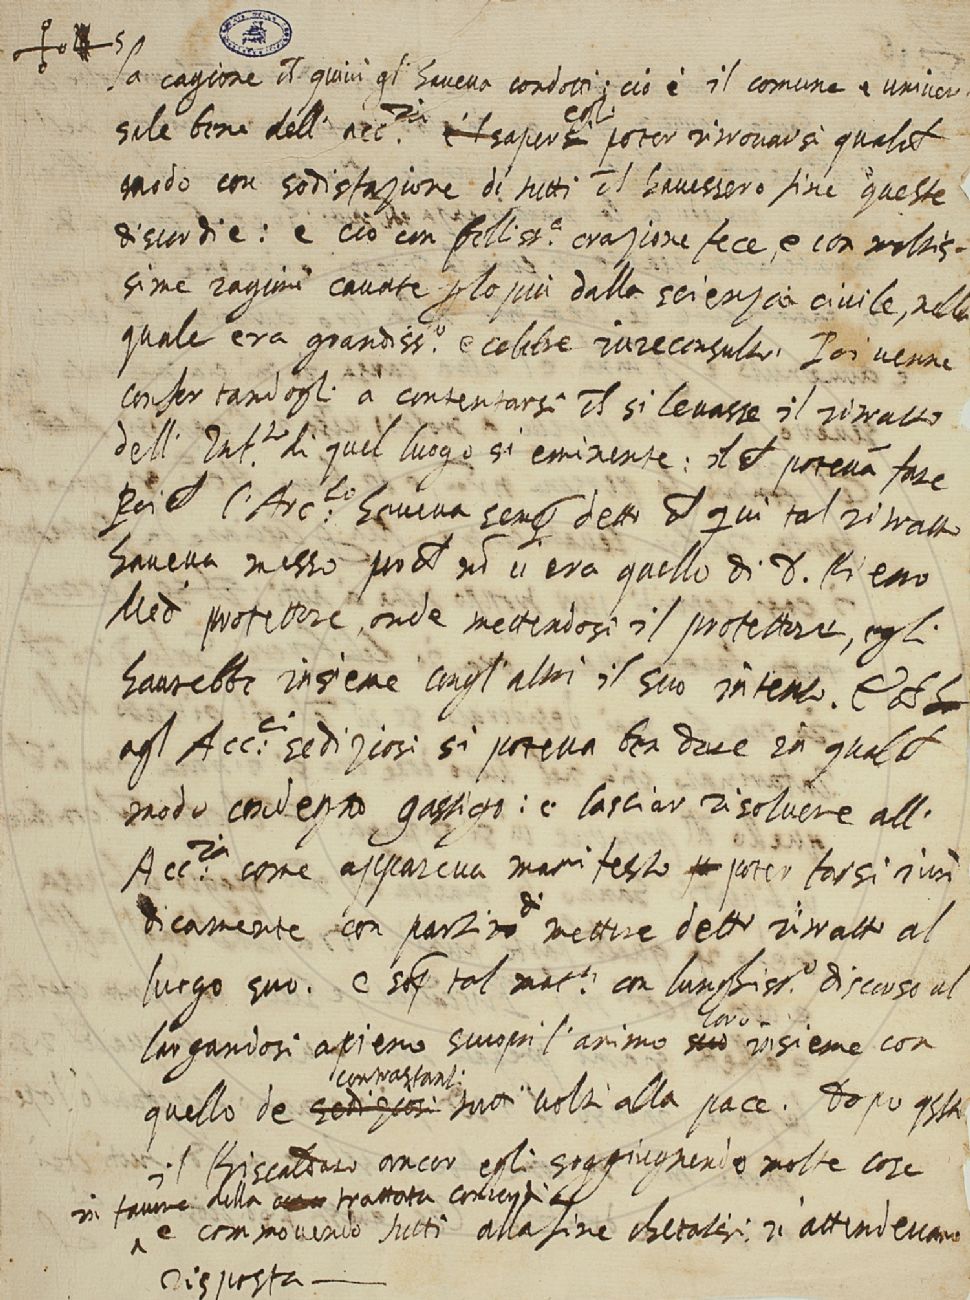 la cagione che quivi gl' haveva condotti; ciò è il comune e univer-
sale bene dell' Acc.ia sapersi egli poter ritrovarsi qualch
modo con sodisfazione di tutti ch havessero fine queste
discordie: e ciò con bellis.a orazione fece, e con moltis-
sime ragioni cavate p lo più dalla scienzia civile, nella
quale era grandiss.o e celebre iureconsulto. Poi venne
confortandogli a contentarsi ch si levasse il ritratto
dell' Inf.to di quel luogo si eminente: il ch potevā fare
Poi ch l'Arc.lo haveva semp detto ch quivi tal ritratto
haveva messo p ch nō vi era quello di D. Piero
Med protettore, onde mettendosi il protettore, egli
haurebbe insieme congl' altri il suo intento. E
agl' Acc.ci sediziosi si poteva ben dare in qualch
modo condegno gastigo: e lasciar risolvere all'
Acc.ia come appareva manifesto poter farsi iuri
dicamente con partito di mettere detto ritratto al
luogo suo. e sop tal mat.a con lunghiss.o discorso al
largandosi apieno scuoprì l'animo loro insieme con
quello de contrastanti tutti volti alla pace. Dopo qsta
il Riscaldato ancor egli soggiugnendo molte cose
in favore della trattata concordia
e commovendo tutti alla fine chetatisi si attendevano
risposta